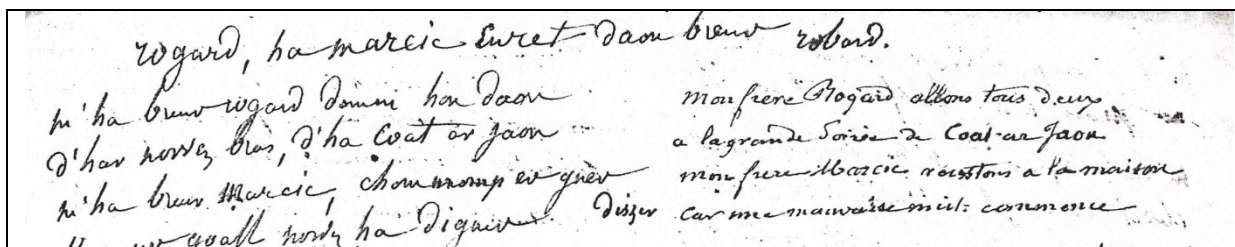 rogard, ha marcic Euret daou breur robard.
m'ha breur rogard deomni hon daou
d'har nosvez bras, d'ha Coat ar jaou
m'ha breur Marcic, chomomp er guer
goall nosvez ha digouer
mon frere Rogard allons tous deux
a la grande Soirée de Coat-ar Jaou
mon frere Marcic restons a la maison
disser car une mauvaise nuit commence